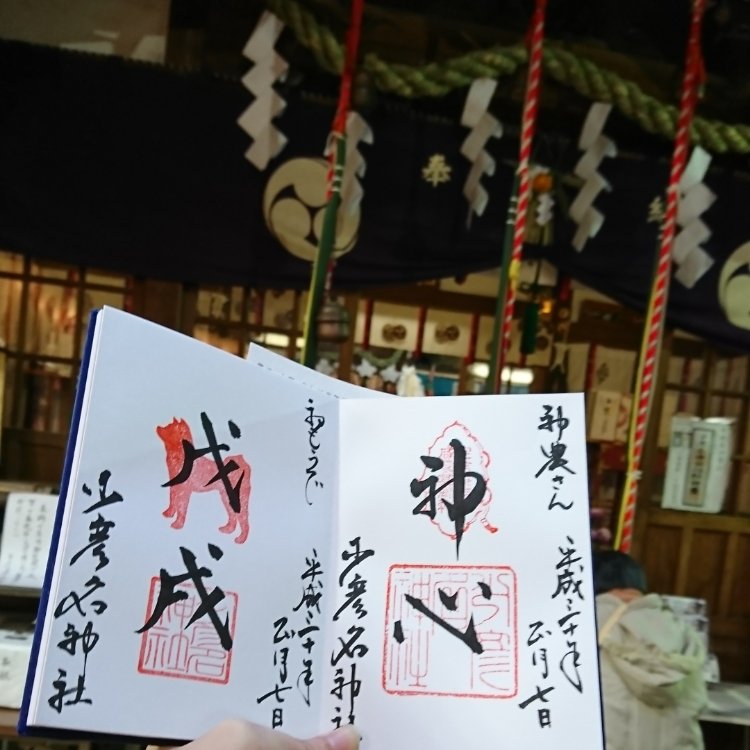 奉
神農さん
平成三十年
正月七日
神心
少彦名神社
初もうで
平成三十年
正月七日
戊戌
少彦名神社